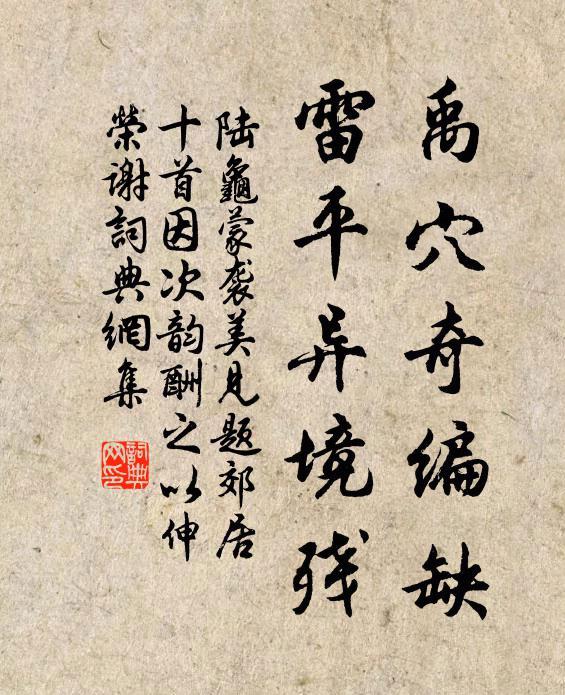 禹穴奇编缺
雷平异境残
陆龜蒙袭美見题郊居
十首因次韵酬之以伸
榮谢詞典網集
詞典
网印